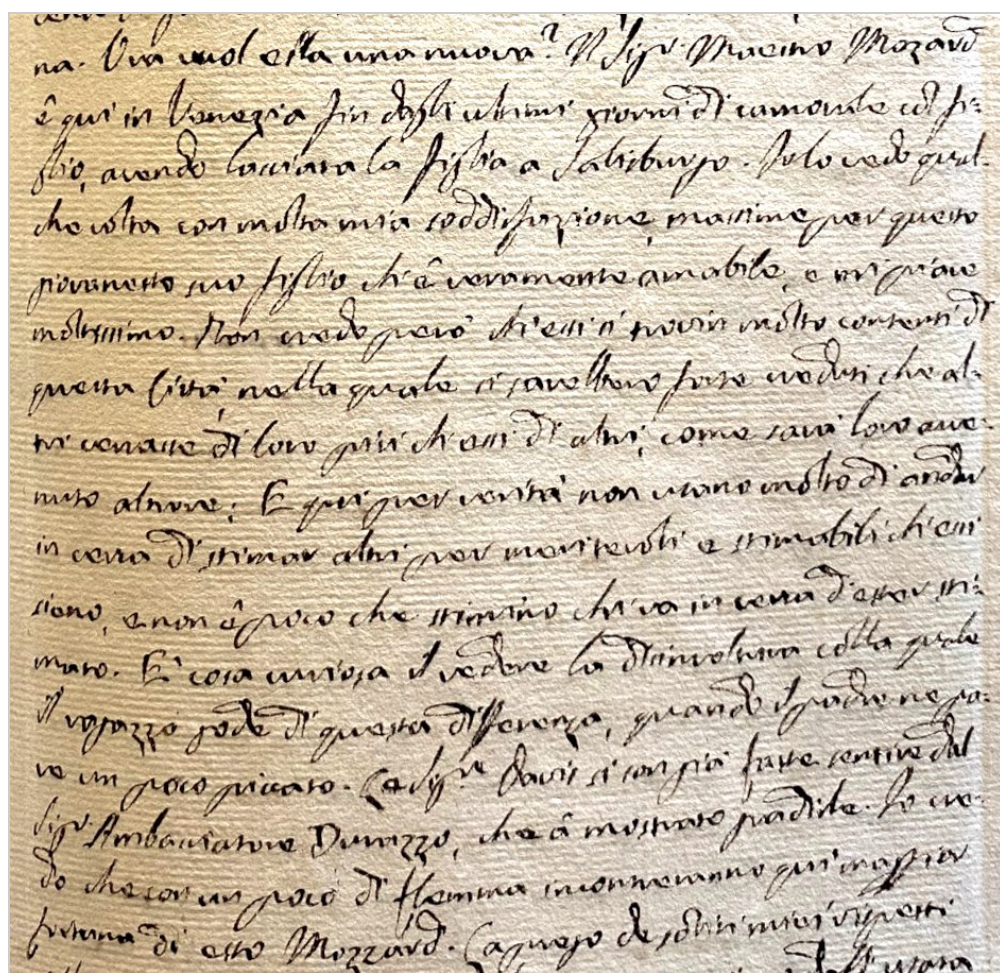 na. Ora vuol ella una nuova? Il Sigr. Maestro Mozard
è qui in Venezia fin dagli ultimi giorni di carnovale col fi=
glio, avendo lasciata la figlia a Salisburgo. Io lo vedo qual-
che volta con molta mia soddisfazione, massime per questo
giovanetto suo figlio ch'è veramente amabile, e mi piace
moltissimo. Non credo però ch'essi si trovin molto contenti di
questa Città, nella quale si sarebbero forse creduti che al-
tri cercasse di loro più ch'essi di altri, come sarà loro avve-
nuto altrove; E qui per verità non usano molto di andar
in cerca di stimar altri per meritevoli e stimabili ch'essi
siono, e non è poco che stimino chi va in cerca d'esser sti=
mato. È cosa curiosa il vedere la disinvoltura colla quale
il ragazzo gode di questa differenza, quando il padre ne pa-
re un poco piccato. Le Sigre. Davis si son già fatte sentire dal
Sigr. Ambasciatore Durazzo, che à mostrato gradirle. Io cre-
do che con un poco di flemma incontreranno qui maggior
fortuna di esso Mozzard. La prego de soliti miei rispetti